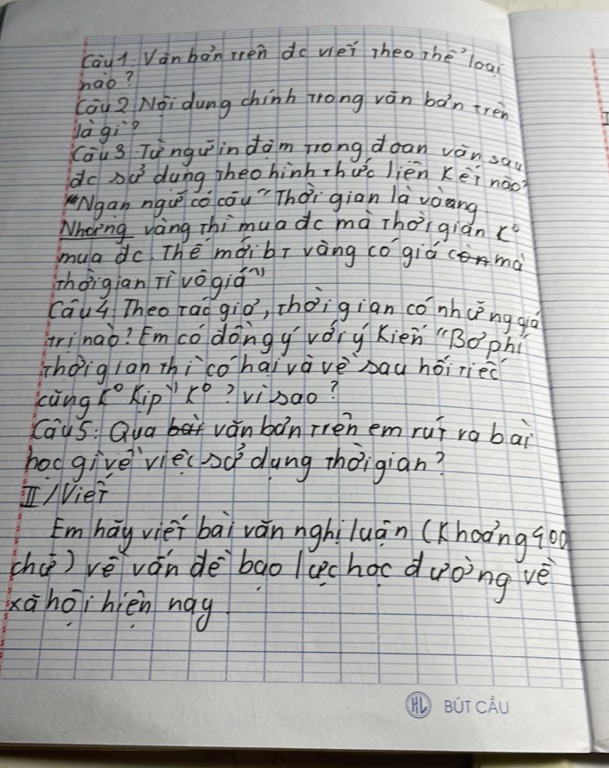 Câu 1. Văn bản trên dc viết theo thể loại
nào?
Câu 2 Nội dung chính trong văn bản trên
là gì?
Câu 3 Từ ngữ in đậm trong đoạn văn sau
dc sử dụng theo hình thức liên kết nào?
"Ngạn ngữ có câu "Thời gian là vàng
Nhưng vàng thì mua dc mà thời gian k⁰
mua dc. Thế mới bt vàng có giá còn mà
thời gian tì vô giá")
Câu 4. Theo tác giả, thời gian có những giá
trị nào? Em có đồng ý với ý kiến "Bỏ phí
thời gian thì có hại và về sau hối tiếc
cũng k⁰ kịp" k⁰? vì sao?
Câu 5: Qua bài văn bản trên em rút ra bài
học gì về việc sử dụng thời gian?
II/Viết
Em hãy viết bài văn nghị luận (khoảng 400
chữ) về vấn đề bạo lực học đường về
xã hội hiện nay.
HL BÚT CẦU